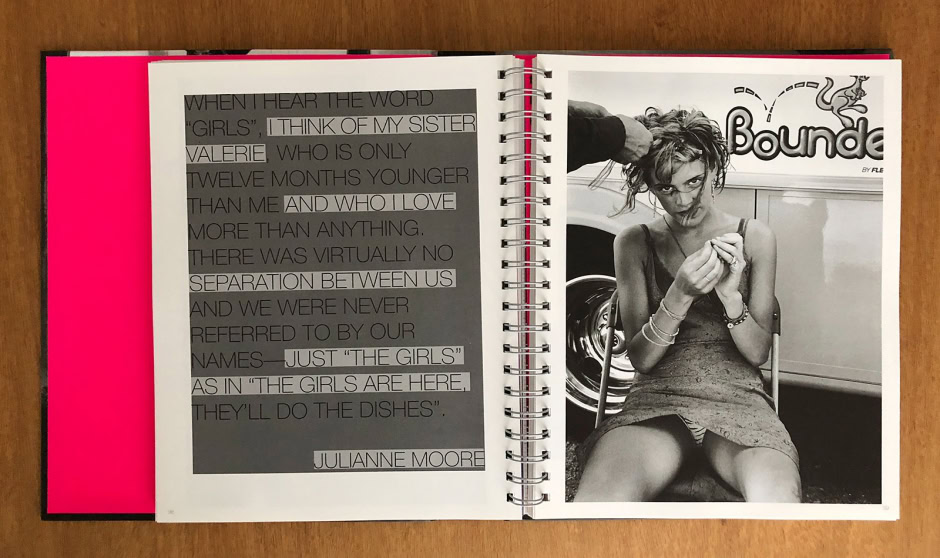 WHEN I HEAR THE WORD
"GIRLS", I THINK OF MY SISTER
VALERIE, WHO IS ONLY
TWELVE MONTHS YOUNGER
THAN ME AND WHO I LOVE
MORE THAN ANYTHING.
THERE WAS VIRTUALLY NO
SEPARATION BETWEEN US
AND WE WERE NEVER
REFERRED TO BY OUR
NAMES—JUST "THE GIRLS"
AS IN "THE GIRLS ARE HERE,
THEY'LL DO THE DISHES".
JULIANNE MOORE
Bounde
BY FLE